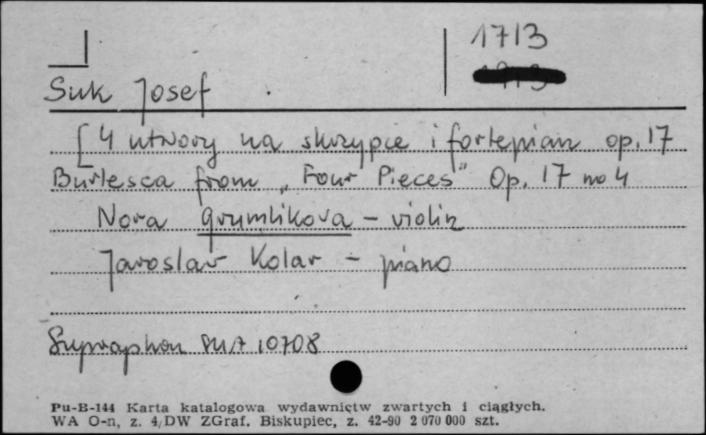 1713
Suk Josef
[4 utwory na skrzypce i fortepian op. 17
Burlesca from „Four Pieces" Op. 17 no 4
Nora Grumlikova - violin
Jaroslav Kolar - piano
Supraphon SUA 10708
Pu-B-144 Karta katalogowa wydawnictw zwartych i ciągłych.
WA O-n, z. 4/DW ZGraf. Biskupiec, z. 42-90 2 070 000 szt.